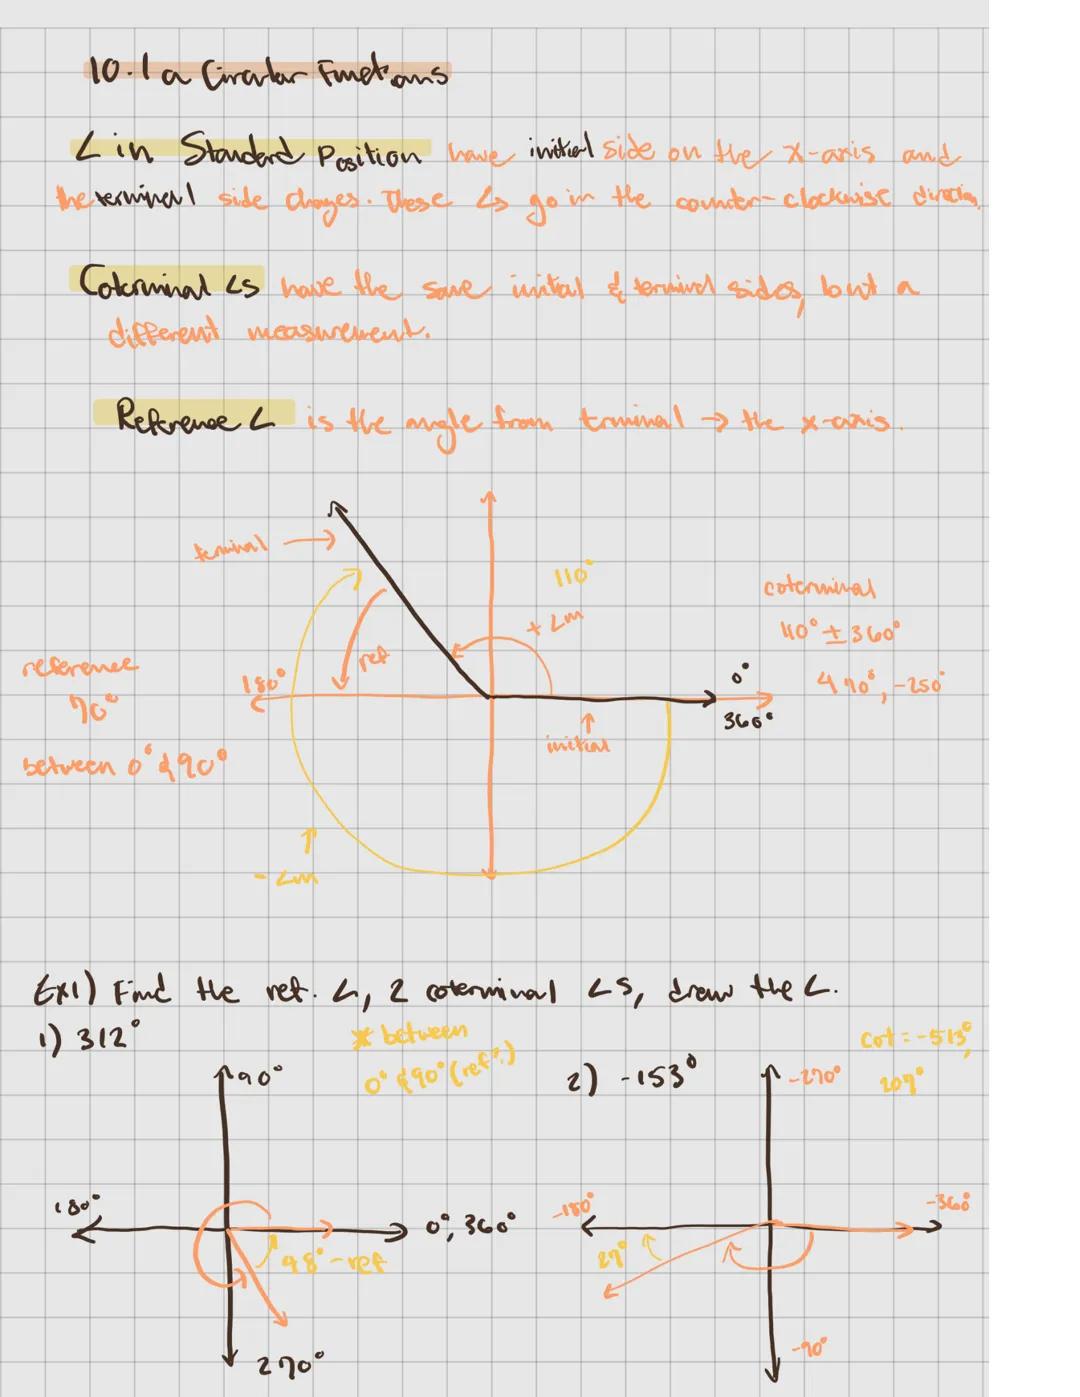 10.1a Circular Functions
∠ in Standard Position have initial side on the x-axis and
the terminal side changes. These ∠s go in the counter-clockwise direction.
Coterminal ∠s have the same initial & terminal sides, but a
different measurement.
Reference ∠ is the angle from terminal → the x-axis.
terminal
110°
+∠m
coterminal
110° ± 360°
470°, -250°
reference
70°
between 0° & 90°
180°
ref
0°
360°
initial
-∠m
Ex1) Find the ref. ∠, 2 coterminal ∠s, draw the ∠.
1) 312°
* between
0° & 90° (ref°)
2) -153°
cot = -513°,
207°
90°
-270°
180°
0°, 360°
48° - ref
-180°
-360°
27°
270°
-90°